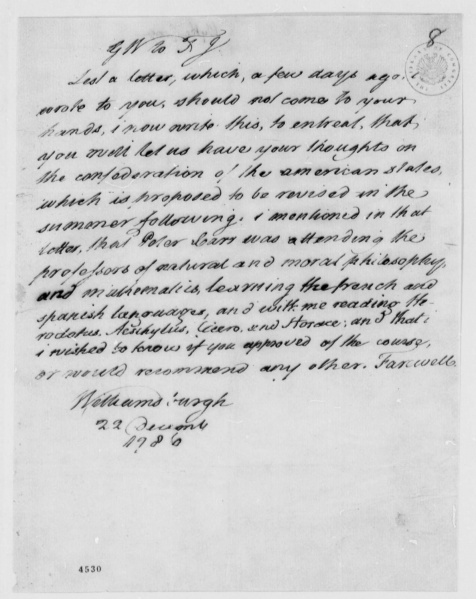 GW to T J.
8
Lest a letter, which, a few days ago, i
wrote to you, should not come to your
hands, i now write this, to entreat, that
you will let us have your thoughts on
the confederation of the american states,
which is proposed to be revised in the
summer following. i mentioned in that
letter, that Peter Carr was attending the
professors of natural and moral philosophy,
and mathematics, learning the french and
spanish languages, and with me reading He-
rodotus, Æschylus, Cicero, and Horace; and that
i wished to know if you approved of the course,
or would recommend any other. Farewell.
Williamsburgh
22 Decemb
1786
4530